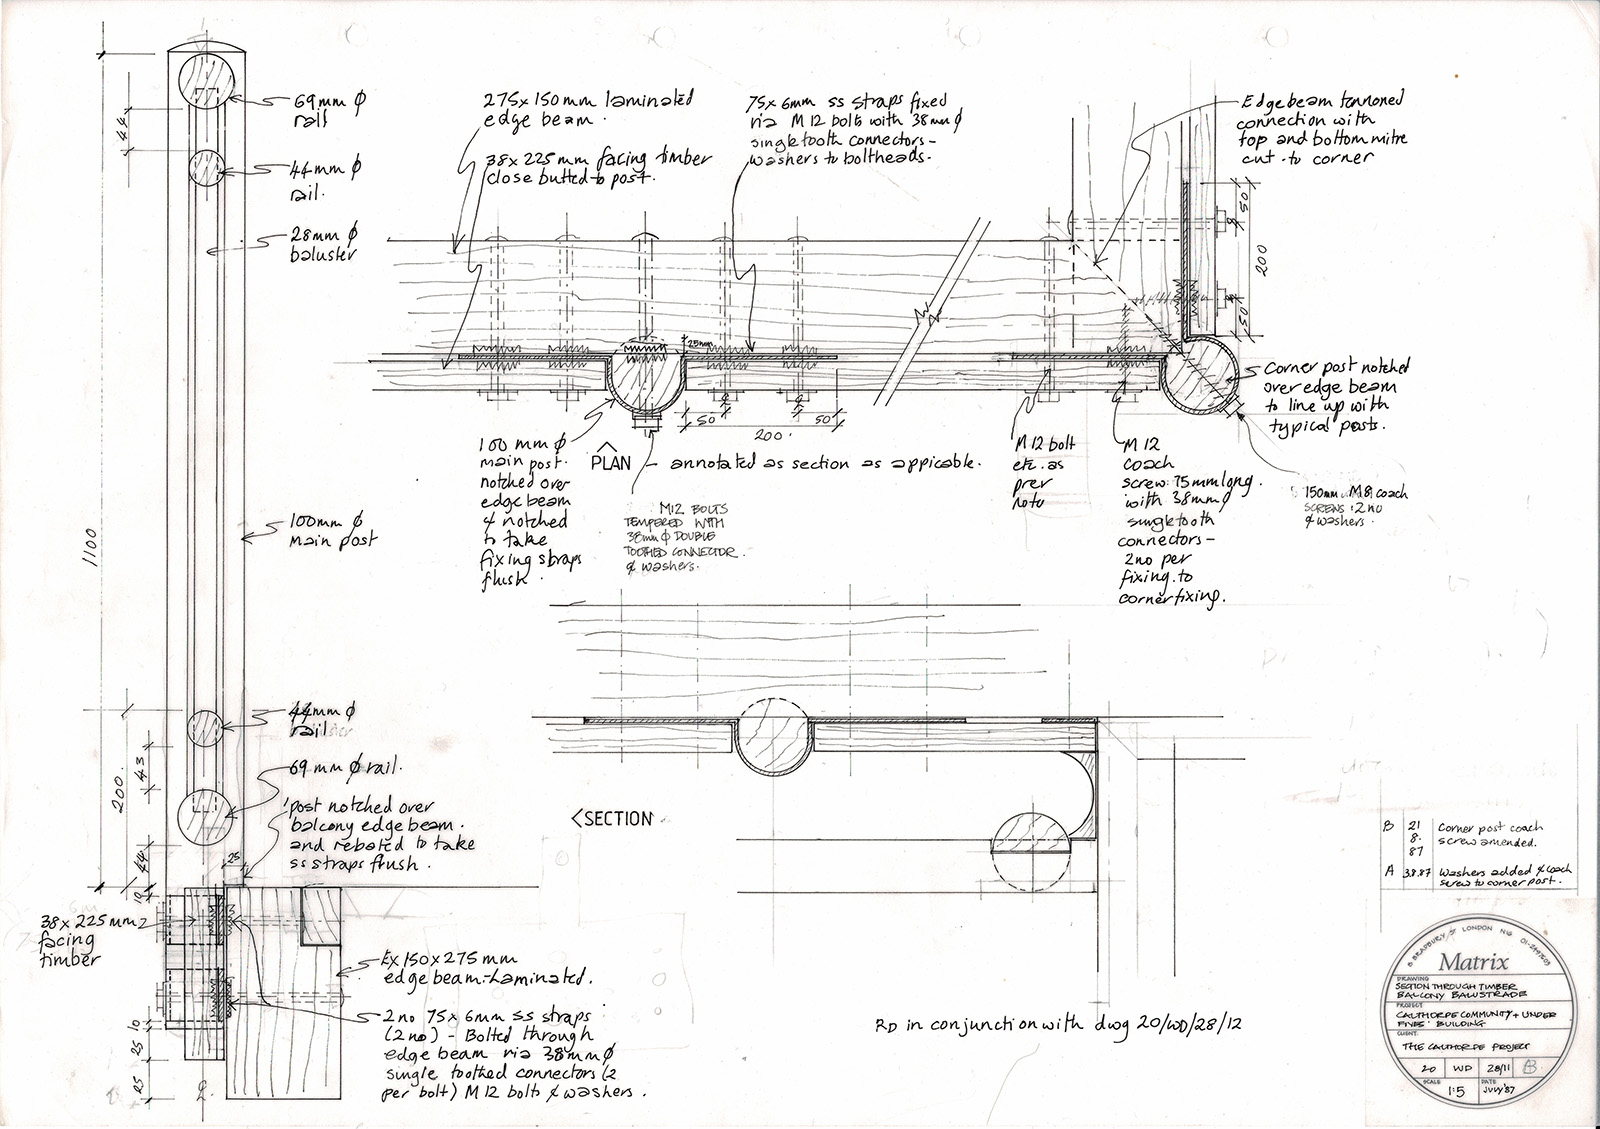 69mm φ
rail
44mm φ
rail.
28mm φ
baluster
100mm φ
main post
44mm φ
rail
69 mm φ rail.
post notched over
balcony edge beam.
and rebated to take
ss straps flush.
44
1100
200
43
44
25
10
10
25
25
38 x 225 mm
facing
timber
Ex 150 x 275 mm
edge beam-Laminated.
2 no 75 x 6mm ss straps
(2 no) - Bolted through
edge beam via 38mm φ
single toothed connectors (2
per bolt) M 12 bolts & washers.
275 x 150 mm laminated
edge beam.
38 x 225 mm facing timber
close butted to post.
75 x 6mm ss straps fixed
via M 12 bolts with 38mm φ
single tooth connectors-
washers to boltheads.
Edge beam tennoned
connection with
top and bottom mitre
cut to corner
50
200
50
25mm
50
50
200.
100 mm φ
main post.
notched over
edge beam
& notched
to take
fixing straps
flush.
PLAN - annotated as section as appicable.
M12 BOLTS
TEMPERED WITH
38mm φ DOUBLE
TOOTHED CONNECTOR.
& washers.
M 12 bolt
etc. as
prev
note
M 12
coach
screw 75mm long.
with 38mm φ
single tooth
connectors-
2 no per
fixing to
corner fixing.
Corner post notched
over edge beam
to line up with
typical posts.
150mm M8 coach
SCREWS 2 no
& washers.
SECTION
RD in conjunction with dwg 20/WD/28/12
B 21 8. 87 Corner post coach
screw amended.
A 3.8.87 Washers added & coach
screw to corner post.
8 BRADBURY ST LONDON N16
Matrix
DRAWING
SECTION THROUGH TIMBER
BALCONY BALUSTRADE
PROJECT
CALTHORPE COMMUNITY + UNDER
FIVES' BUILDING
CLIENT
THE CALTHORPE PROJECT
20 WD 28/11
SCALE
1:5
DATE
JULY '87